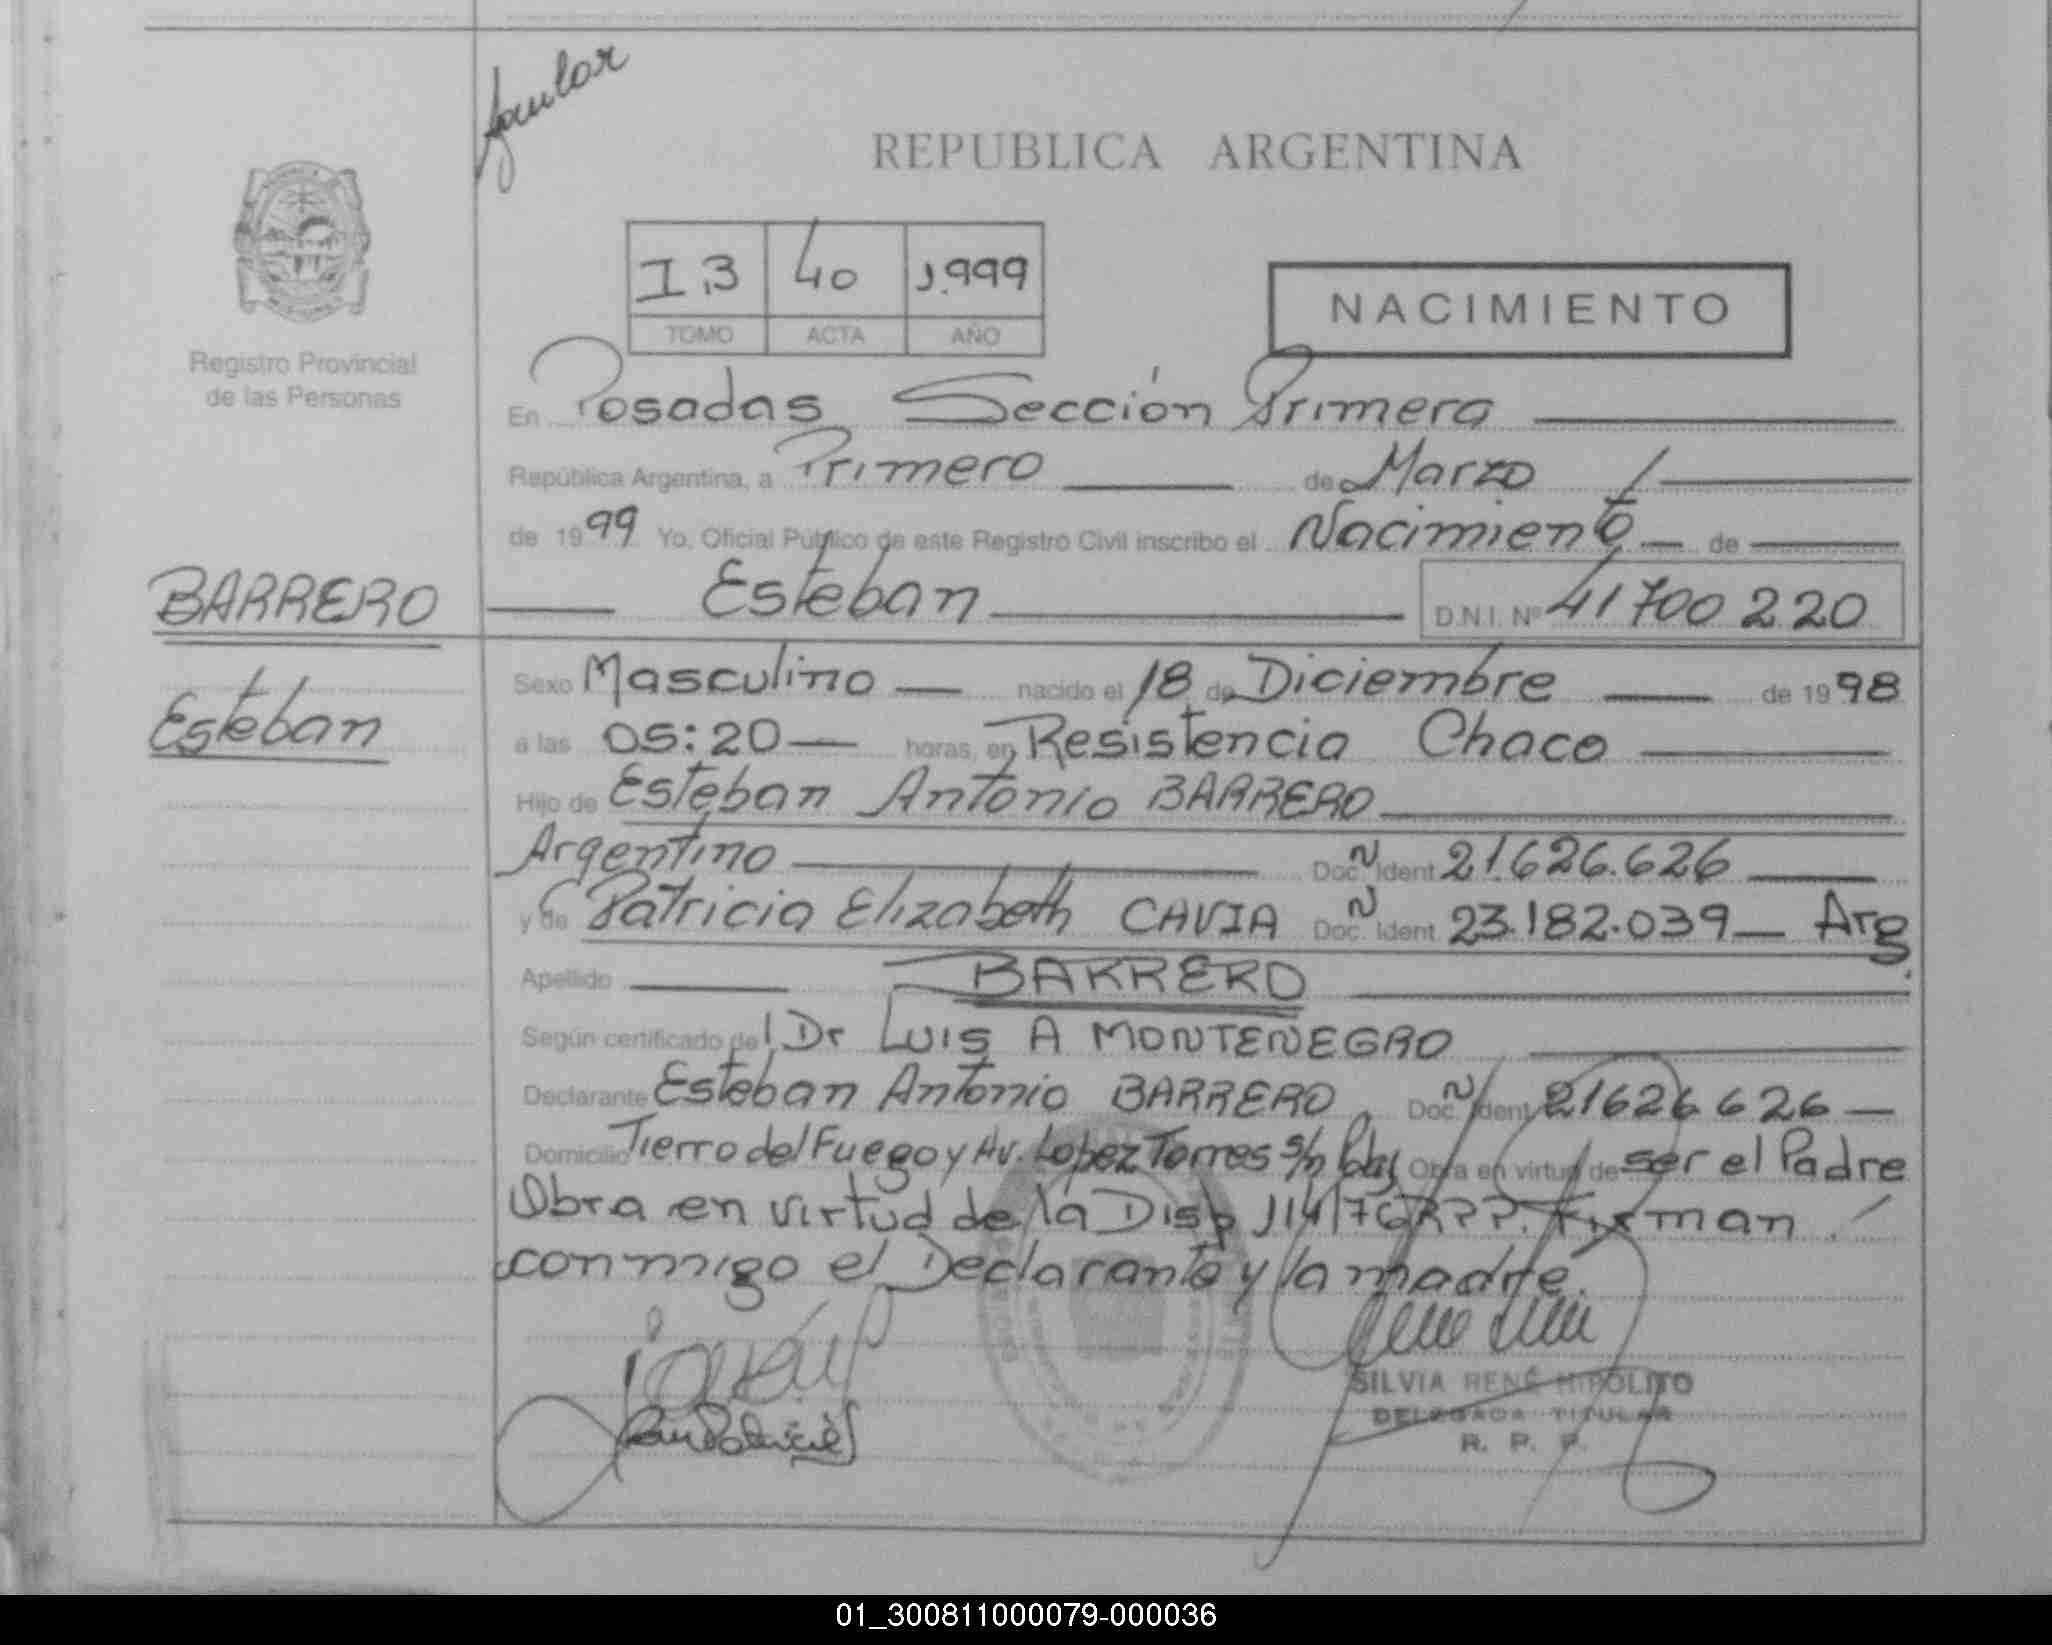 Aguilar
REPUBLICA ARGENTINA
I.3 40 1.999
TOMO ACTA AÑO
NACIMIENTO
Registro Provincial
de las Personas
En Posadas Sección Primera
República Argentina, a Primero de Marzo
de 1999 Yo, Oficial Público de este Registro Civil inscribo el Nacimiento de
BARRERO
Esteban D.N.I. Nº 41700220
Esteban
Sexo Masculino nacido el 18 de Diciembre de 1998
a las 05:20 horas, en Resistencia Chaco
Hijo de Esteban Antonio BARRERO
Argentino Doc. N Ident 21.626.626
y de Patricia Elizabeth CAVIA Doc. N Ident 23.182.039 Arg.
Apellido BARRERO
Según certificado del Dr Luis A MONTENEGRO
Declarante Esteban Antonio BARRERO Doc. N Ident 21626626
Domicilio Tierra del Fuego y Av. Lopez Torres s/n Pdas Obra en virtud de ser el Padre
Obra en virtud de la Disp 114/76 RPP. Firman
conmigo el Declarante y la madre.
SILVIA RENÉ HIPÓLITO
DELEGADA TITULAR
R. P. P.
01_300811000079-000036